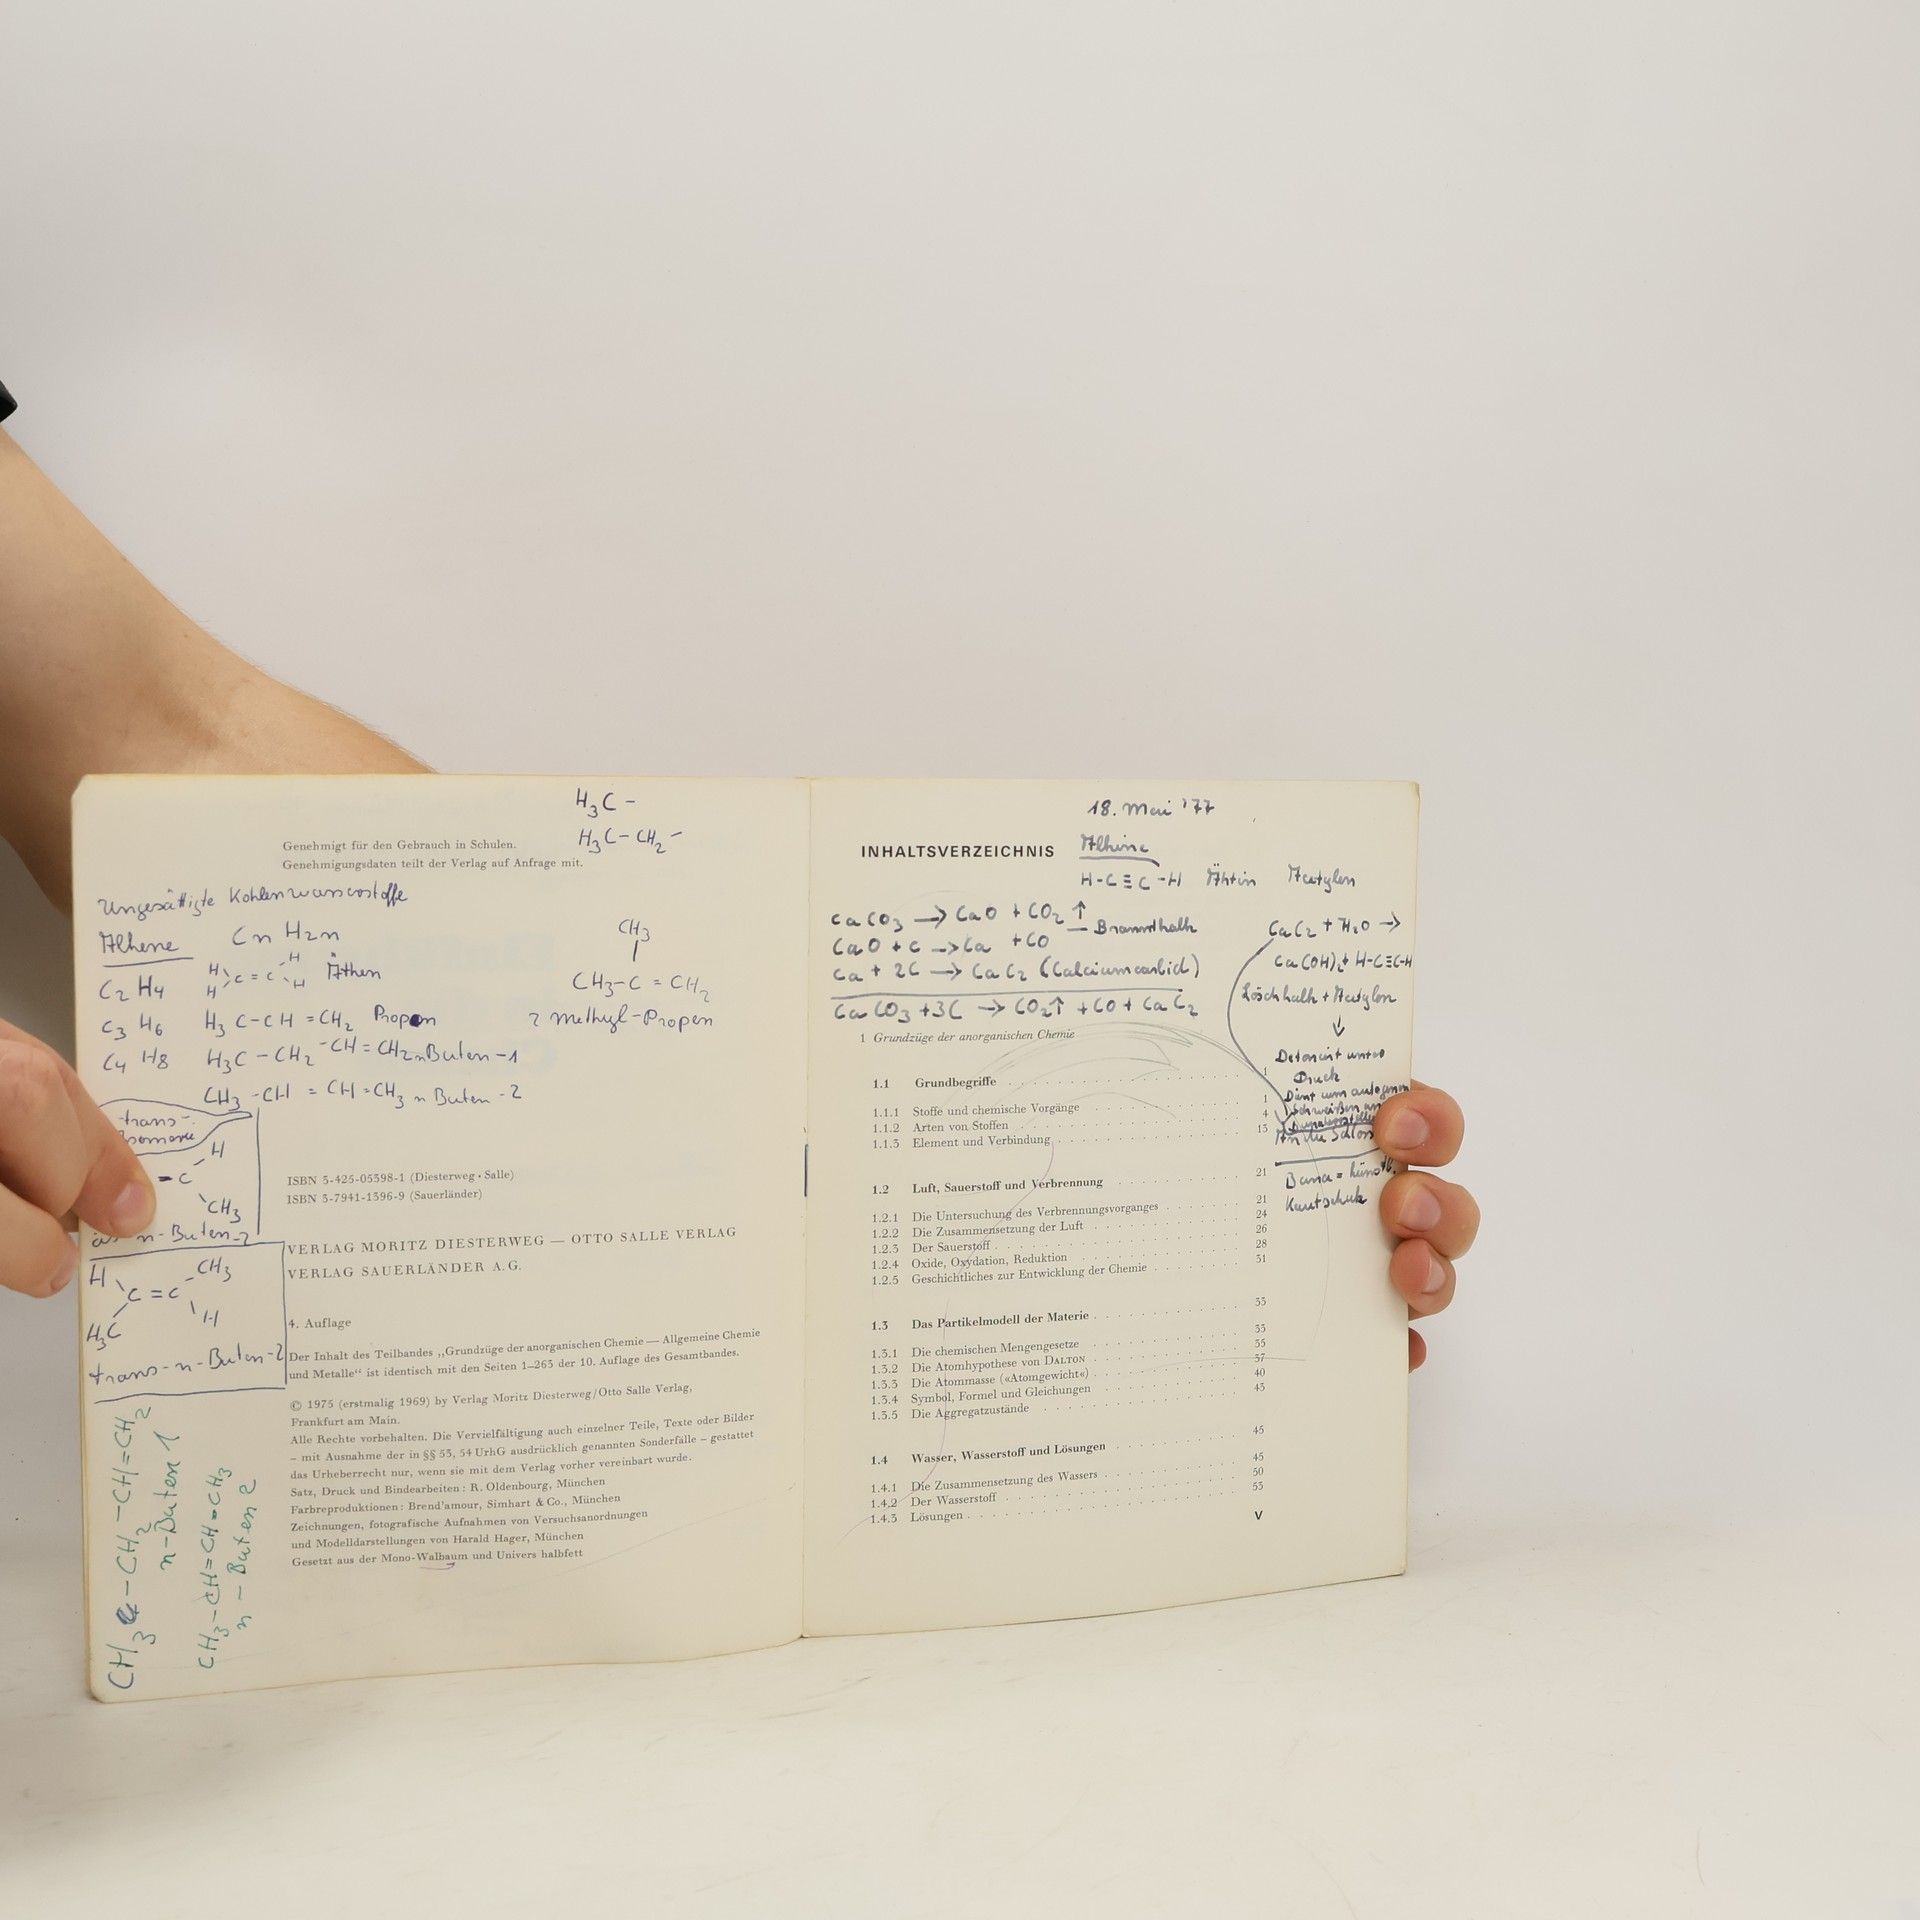 H3C –
H3C – CH2 –
Genehmigt für den Gebrauch in Schulen.
Genehmigungsdaten teilt der Verlag auf Anfrage mit.
Ungesättigte Kohlenwasserstoffe
Alkene CnH2n
C2H4 H H C = C H H Äthen
C3H6 H3C-CH=CH2 Propen
C4H8 H3C-CH2-CH=CH2 n Buten-1
CH3-CH=CH=CH3 n Buten-2
CH3
CH3-C=CH2
2 methyl-Propen
trans-
=C H
CH3
n-Buten-2
H CH3
C=C
H3C H
trans-n-Buten-2
CH3-CH2-CH=CH2
n-Buten 1
CH3-CH=CH=CH3
n-Buten 2
ISBN 3-425-05398-1 (Diesterweg · Salle)
ISBN 3-7941-1396-9 (Sauerländer)
VERLAG MORITZ DIESTERWEG — OTTO SALLE VERLAG
VERLAG SAUERLÄNDER A.G.
4. Auflage
Der Inhalt des Teilbandes „Grundzüge der anorganischen Chemie — Allgemeine Chemie
und Metalle“ ist identisch mit den Seiten 1–263 der 10. Auflage des Gesamtbandes.
© 1975 (erstmalig 1969) by Verlag Moritz Diesterweg/Otto Salle Verlag,
Frankfurt am Main.
Alle Rechte vorbehalten. Die Vervielfältigung auch einzelner Teile, Texte oder Bilder
– mit Ausnahme der in §§ 53, 54 UrhG ausdrücklich genannten Sonderfälle – gestattet
das Urheberrecht nur, wenn sie mit dem Verlag vorher vereinbart wurde.
Satz, Druck und Bindearbeiten: R. Oldenbourg, München
Farbreproduktionen: Brend'amour, Simhart & Co., München
Zeichnungen, fotografische Aufnahmen von Versuchsanordnungen
und Modelldarstellungen von Harald Hager, München
Gesetzt aus der Mono-Walbaum und Univers halbfett
18. Mai '77
INHALTSVERZEICHNIS
Alkine
H-C≡C-H Äthin Acetylen
CaCO3 → CaO + CO2 ↑
– Branntkalk
CaO + C → Ca + CO
Ca + 2C → CaC2 (Calciumcarbid)
CaCO3 + 3C → CO2↑ + CO + CaC2
CaC2 + H2O →
Ca(OH)2 + H-C≡C-H
Löschkalk + Acetylen
↓
Detoniert unter
Druck
Dient zum autogenen
Schweißen
Buna = künstl.
Kautschuk
1 Grundzüge der anorganischen Chemie 1
1.1 Grundbegriffe 1
1.1.1 Stoffe und chemische Vorgänge 1
1.1.2 Arten von Stoffen 4
1.1.3 Element und Verbindung 13
1.2 Luft, Sauerstoff und Verbrennung 21
1.2.1 Die Untersuchung des Verbrennungsvorganges 21
1.2.2 Die Zusammensetzung der Luft 24
1.2.3 Der Sauerstoff 26
1.2.4 Oxide, Oxydation, Reduktion 28
1.2.5 Geschichtliches zur Entwicklung der Chemie 31
1.3 Das Partikelmodell der Materie 33
1.3.1 Die chemischen Mengengesetze 33
1.3.2 Die Atomhypothese von DALTON 35
1.3.3 Die Atommasse («Atomgewicht«) 37
1.3.4 Symbol, Formel und Gleichungen 40
1.3.5 Die Aggregatzustände 43
1.4 Wasser, Wasserstoff und Lösungen 45
1.4.1 Die Zusammensetzung des Wassers 45
1.4.2 Der Wasserstoff 50
1.4.3 Lösungen 53
V